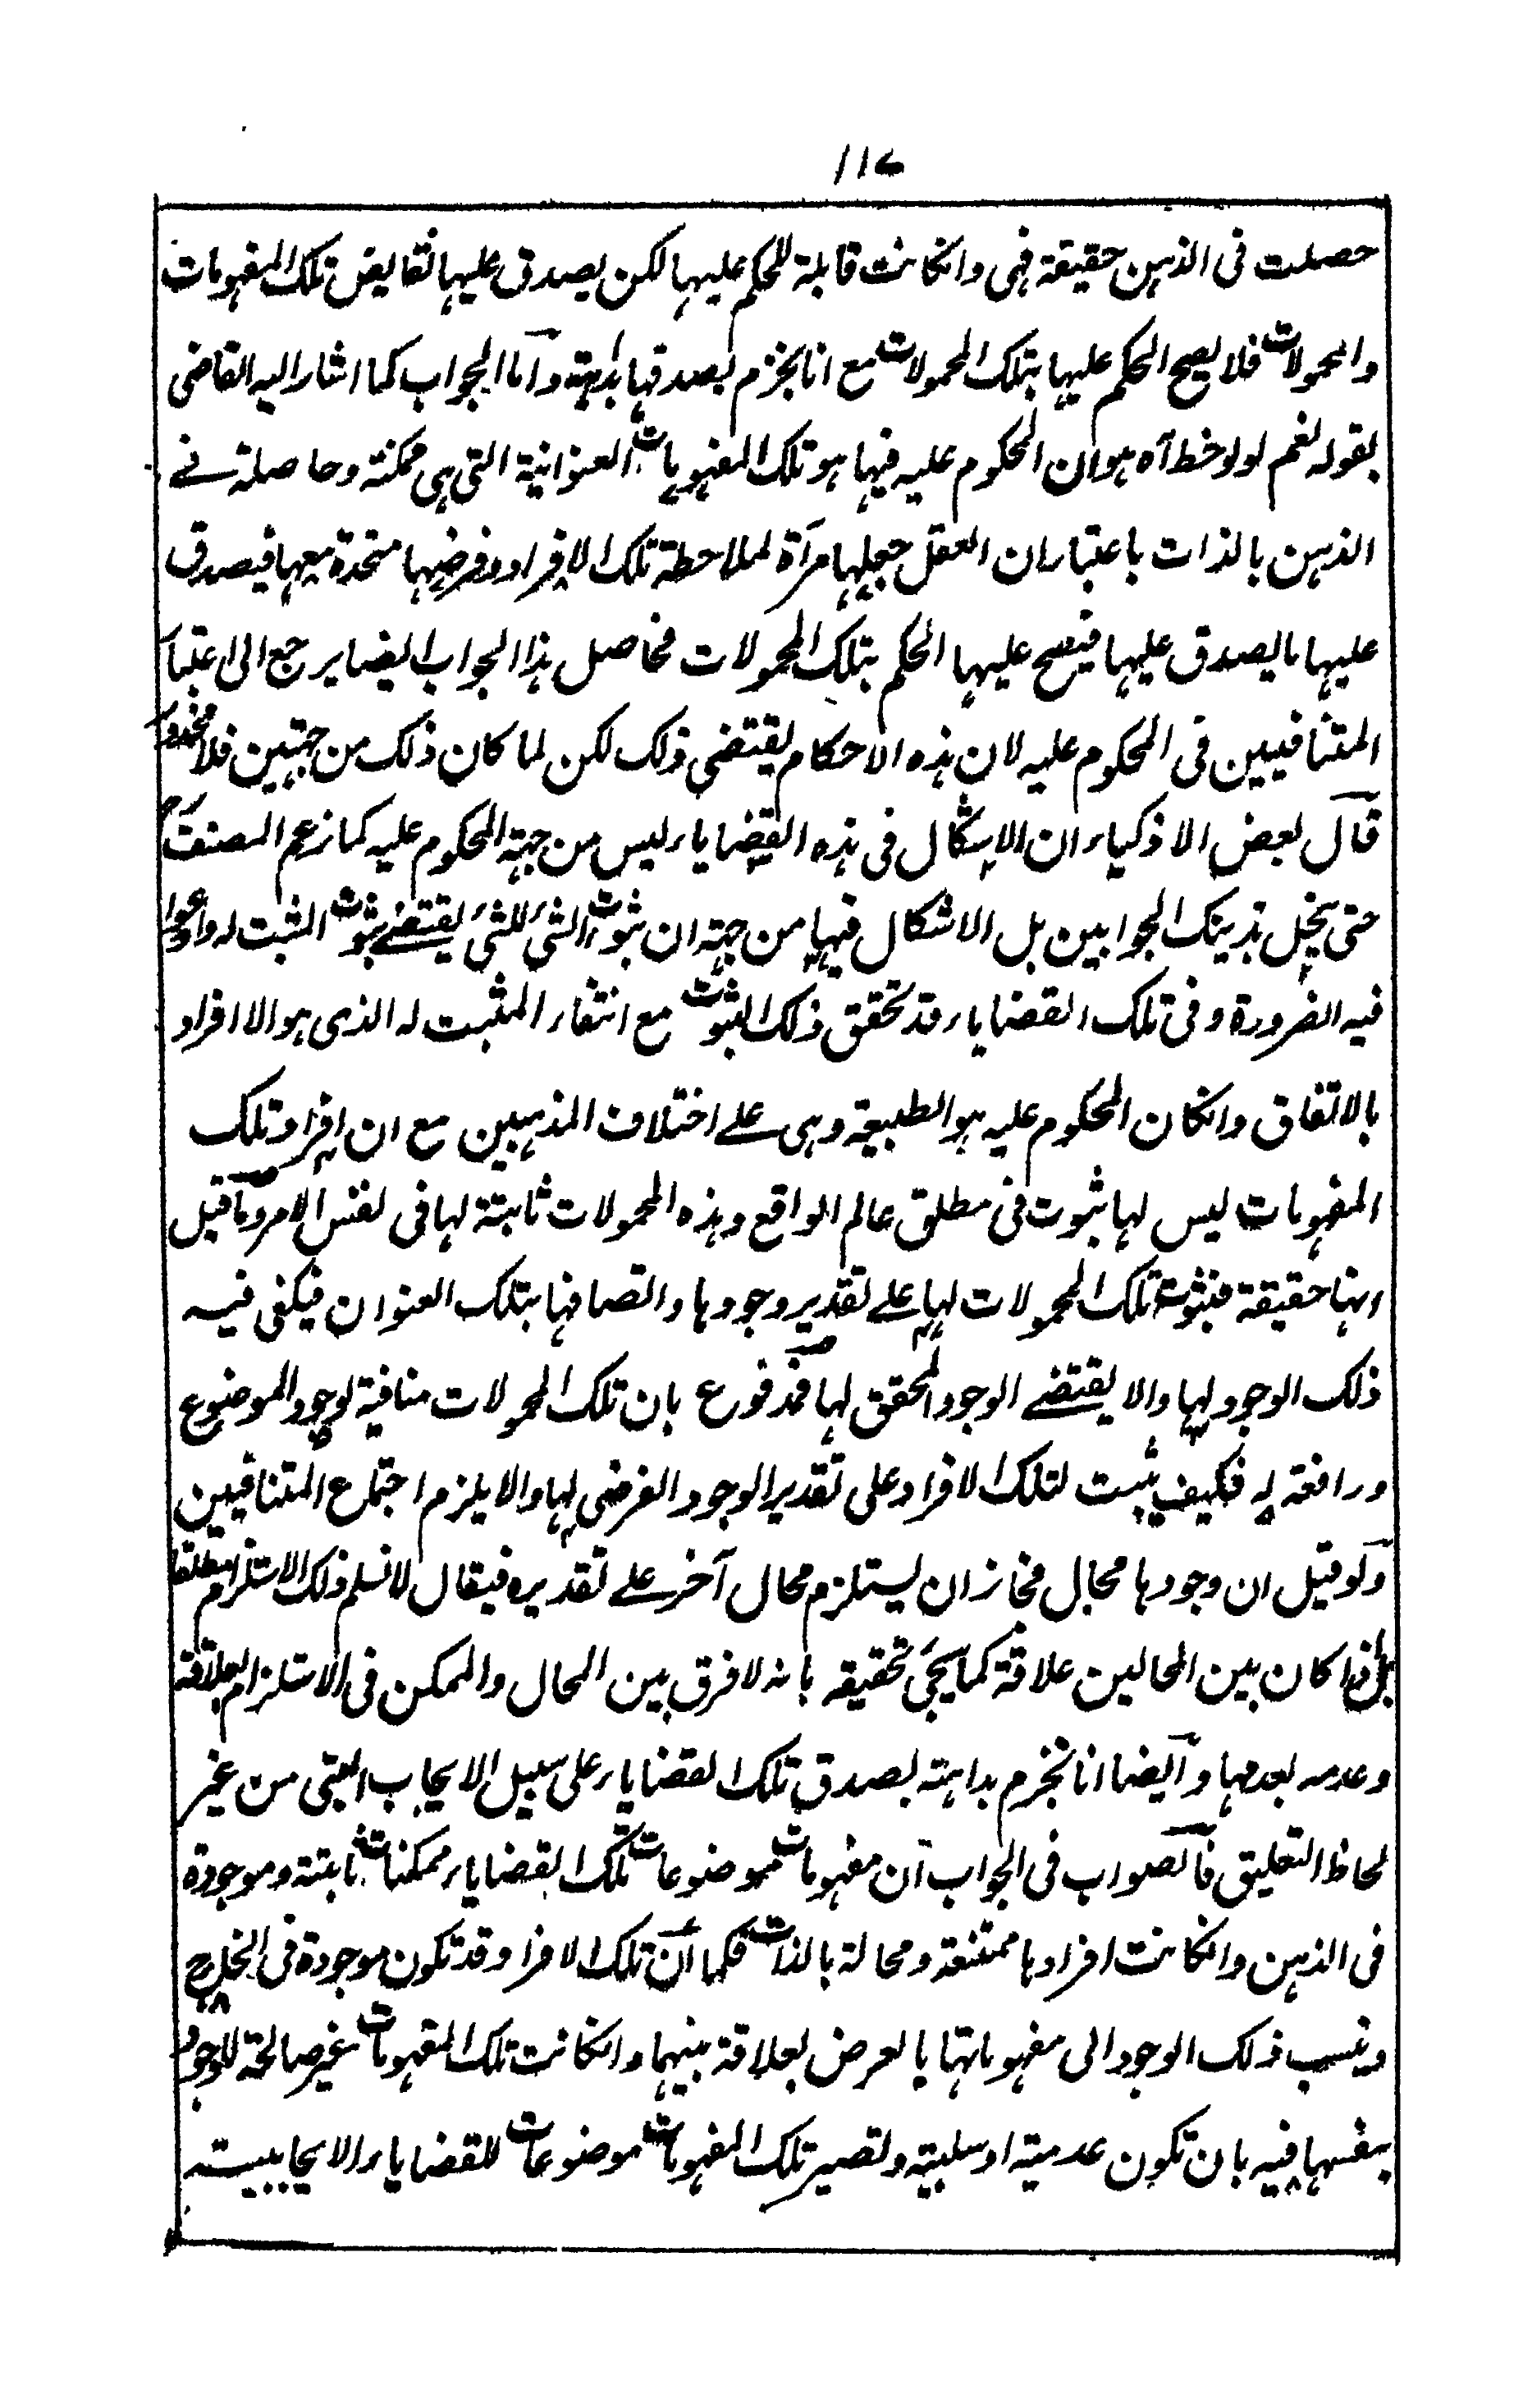 ۱۱۷
حصلت فى الذهن حقيقة فهى وانكانت قابلة للحكم عليها لكن يصدق عليها نقايض تلك المفهومات
والمحمولات فلا يصح الحكم عليها بتلك المحمولات مع انا نجزم بصدقها بداهة واما الجواب كما اشار اليه القاضى
بقوله نعم لو لوحظ آه هو ان المحكوم عليه فيها هو تلك المفهومات العنوانية التى هى ممكنة وحاصلة فى
الذهن بالذات باعتبار ان العقل جعلها مرآة لملاحظة تلك الافراد وفرضها متحدة معها فيصدق
عليها ما يصدق عليها فيصح عليها الحكم بتلك المحمولات فحاصل هذا الجواب ايضا يرجع الى اعتبار
المتنافيين فى المحكوم عليه لان هذه الاحكام يقتضى ذلك لكن لما كان ذلك من جهتين فلا محذور
قال بعض الاذكياء ان الاشكال فى هذه القضاياء ليس من جهة المحكوم عليه كما زعم المصنف
حتى ينحل بذينك الجوابين بل الاشكال فيها من جهة ان ثبوت الشئ للشئ يقتضى ثبوت المثبت له وادعوا
فيه الضرورة وفى تلك القضاياء قد تحقق ذلك الثبوت مع انتفاء المثبت له الذى هو الافراد
بالاتفاق وانكان المحكوم عليه هو الطبيعة وهى على اختلاف المذهبين مع ان افراد تلك
المفهومات ليس لها ثبوت فى مطلق عالم الواقع وهذه المحمولات ثابتة لها فى نفس الامر وما قيل
انها حقيقة فثبوت تلك المحمولات لها على تقدير وجودها واتصافها بتلك العنوان فيكفى فيه
ذلك الوجود لها والا يقتضى الوجود المحقق لها فمدفوع بان تلك المحمولات منافية لوجود الموضوع
ورافعة له فكيف يثبت لتلك الافراد على تقدير الوجود الفرضى لها والا يلزم اجتماع المتنافيين
ولو قيل ان وجودها محال فجاز ان يستلزم محال آخر على تقديره فيقال لا نسلم ذلك الاستلزام مطلقا
بل اذا كان بين المحالين علاقة كما يجئ تحقيقه بانه لا فرق بين المحال والممكن فى الاستلزام لعلاقة
وعدمه لعدمها وايضا انا نجزم بداهته بصدق تلك القضاياء على سبيل الايجاب البتى من غير
لحاظ التعليق فالصواب فى الجواب ان مفهومات موضوعات تلك القضاياء ممكنات ثابتة وموجودة
فى الذهن وانكانت افرادها ممتنعة ومحالة بالذات فكما ان تلك الافراد قد تكون موجودة فى الخارج
وينسب ذلك الوجود الى مفهوماتها بالعرض لعلاقة بينهما وانكانت تلك المفهومات غير صالحة للوجود
بنفسها فيه بان تكون عدمية او سلبية ولتصير تلك المفهومات موضوعات للقضاياء الايجابية